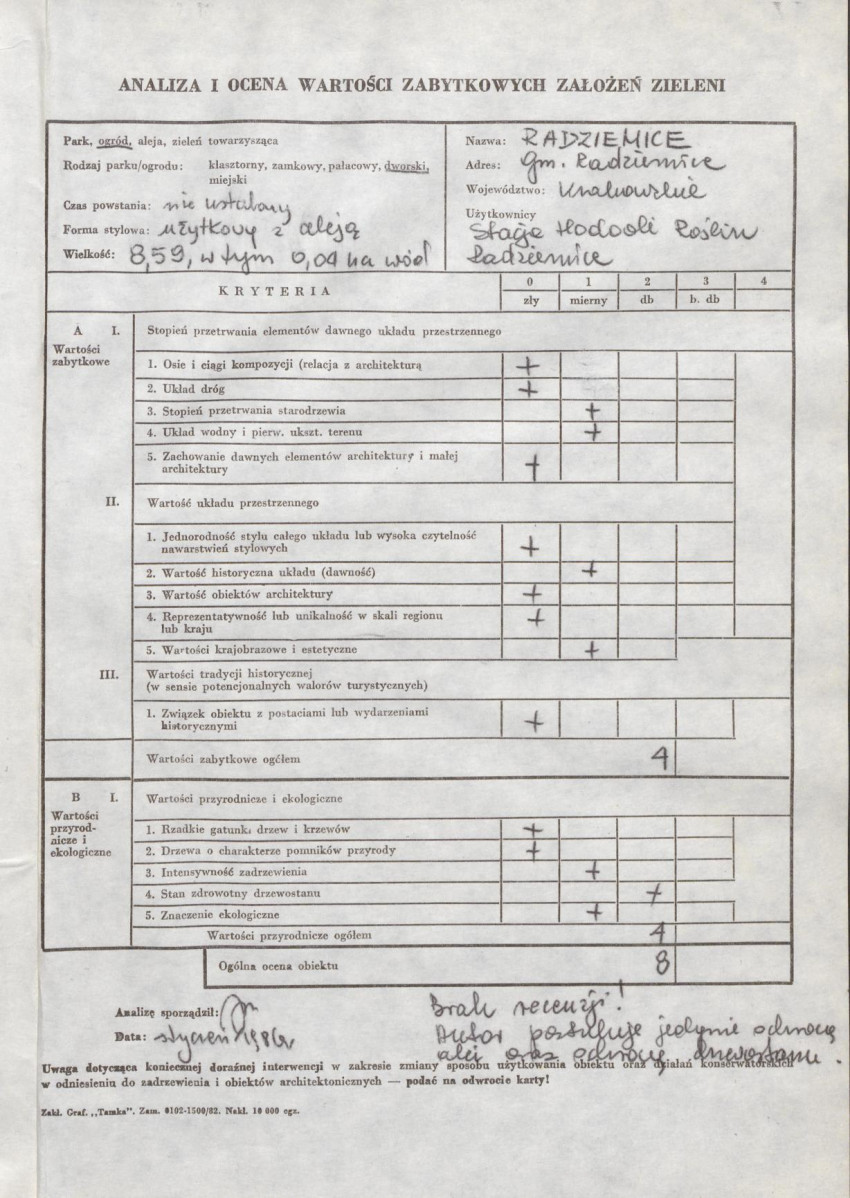 ANALIZA I OCENA WARTOŚCI ZABYTKOWYCH ZAŁOŻEŃ ZIELENI
Park, ogród, aleja, zieleń towarzysząca
Rodzaj parku/ogrodu: klasztorny, zamkowy, pałacowy, dworski,
miejski
Czas powstania: nie ustalony
Forma stylowa: użytkowy z aleją
Wielkość: 8,59, w tym 0,04 ha wód
Nazwa: RADZIEMICE
Adres: Gm. Radziemice
Województwo: Krakowskie
Użytkownicy
Stacja Hodowli Roślin
Radziemice
KRYTERIA
0 1 2 3 4
zły mierny db b. db
A I. Stopień przetrwania elementów dawnego układu przestrzennego
Wartości
zabytkowe
1. Osie i ciągi kompozycji (relacja z architekturą +
2. Układ dróg +
3. Stopień przetrwania starodrzewia +
4. Układ wodny i pierw. ukszt. terenu +
5. Zachowanie dawnych elementów architektury i małej
architektury +
II. Wartość układu przestrzennego
1. Jednorodność stylu całego układu lub wysoka czytelność
nawarstwień stylowych +
2. Wartość historyczna układu (dawność) +
3. Wartość obiektów architektury +
4. Reprezentatywność lub unikalność w skali regionu
lub kraju +
5. Wartości krajobrazowe i estetyczne +
III. Wartości tradycji historycznej
(w sensie potencjonalnych walorów turystycznych)
1. Związek obiektu z postaciami lub wydarzeniami
historycznymi +
Wartości zabytkowe ogółem 4
B I. Wartości przyrodnicze i ekologiczne
Wartości
przyrod-
nicze i
ekologiczne
1. Rzadkie gatunki drzew i krzewów +
2. Drzewa o charakterze pomników przyrody +
3. Intensywność zadrzewienia +
4. Stan zdrowotny drzewostanu +
5. Znaczenie ekologiczne +
Wartości przyrodnicze ogółem 4
Ogólna ocena obiektu 8
Analizę sporządził:
Data: styczeń 1986r
Brak recenzji!
Autor postuluje jedynie ochronę
alei oraz ochronę drzewostanu.
Uwaga dotycząca koniecznej doraźnej interwencji w zakresie zmiany sposobu użytkowania obiektu oraz działań konserwatorskich
w odniesieniu do zadrzewienia i obiektów architektonicznych — podać na odwrocie karty!
Zakł. Graf. „Tamka". Zam. 0102-1500/82. Nakł. 10 000 egz.